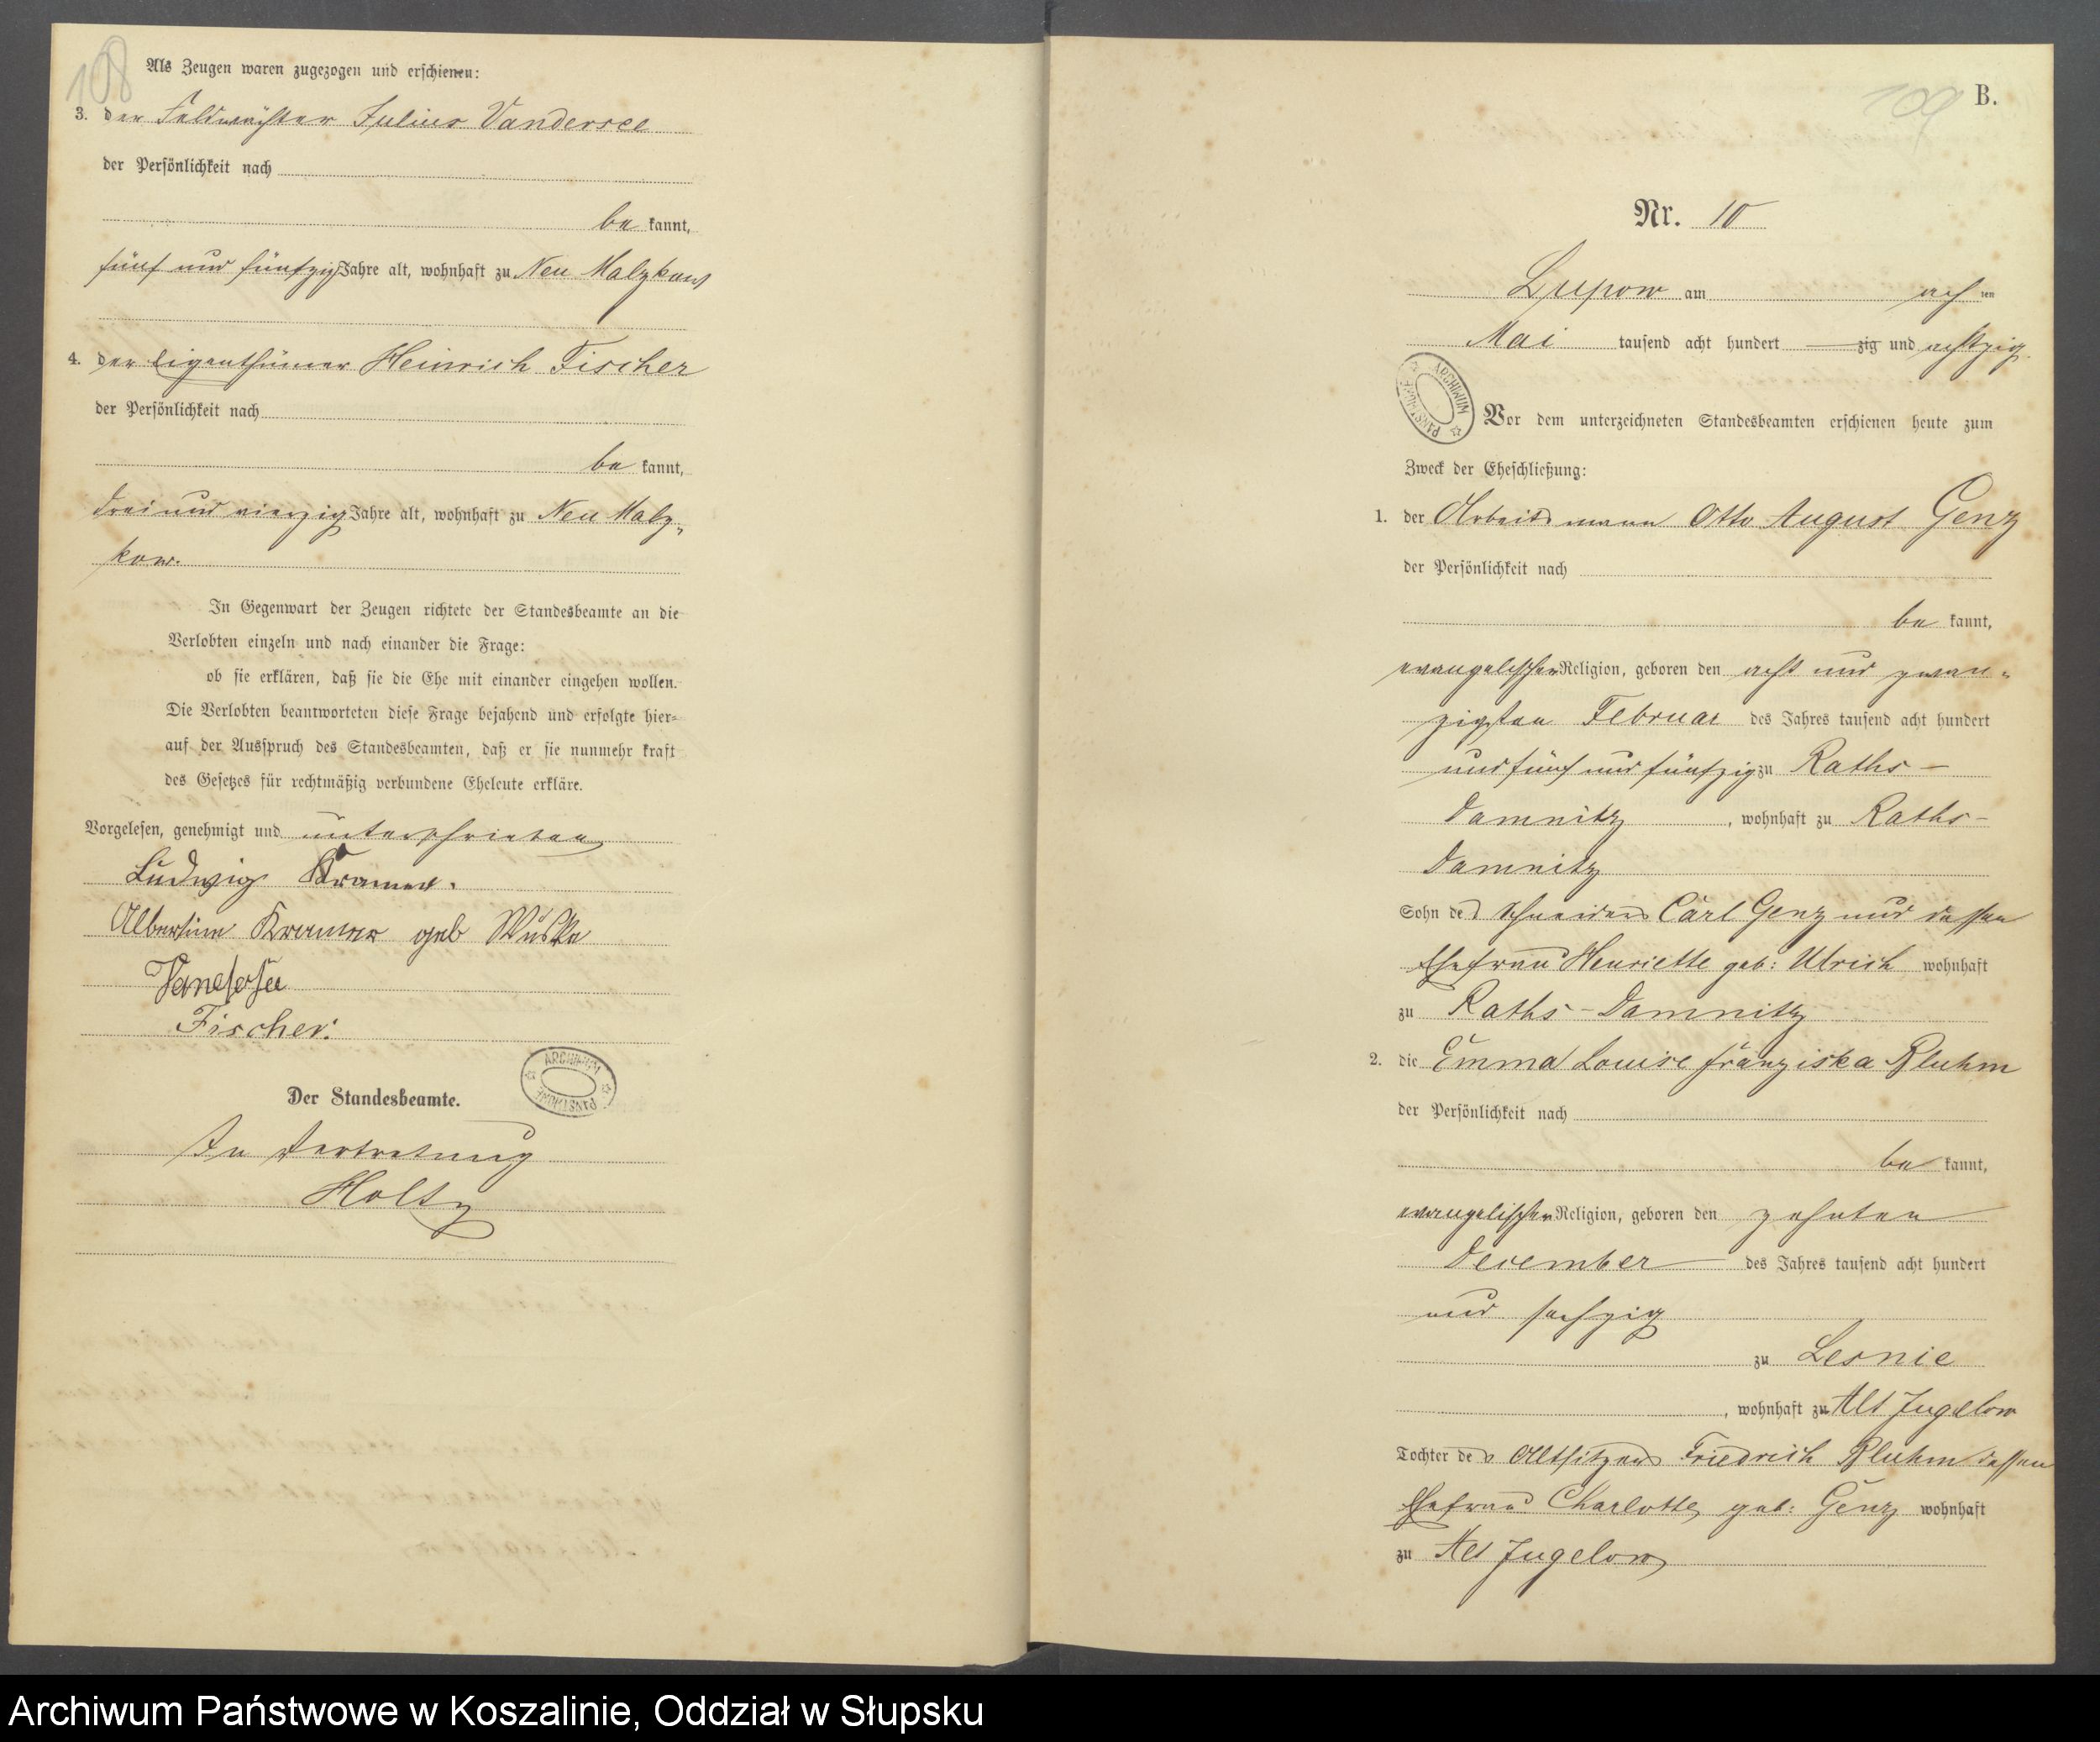 108
Als Zeugen waren zugezogen und erschienen:
3. der Feldwächter Julius Vandersee
der Persönlichkeit nach
be kannt,
fünf und fünfzig Jahre alt, wohnhaft zu Neu Malzkow
4. der Eigenthümer Heinrich Fischer
der Persönlichkeit nach
be kannt,
drei und vierzig Jahre alt, wohnhaft zu Neu Malz-
kow.
In Gegenwart der Zeugen richtete der Standesbeamte an die
Verlobten einzeln und nach einander die Frage:
ob sie erklären, daß sie die Ehe mit einander eingehen wollen.
Die Verlobten beantworteten diese Frage bejahend und erfolgte hier-
auf der Ausspruch des Standesbeamten, daß er sie nunmehr kraft
des Gesetzes für rechtmäßig verbundene Eheleute erkläre.
Vorgelesen, genehmigt und unterschrieben
Ludwig Kramer.
Albertine Kramer geb Wuske
Vandersee
Fischer.
ARCHIWUM PAŃSTWOWE
Der Standesbeamte.
In Vertretung
Holtz
109
B.
Nr. 10
Lupow am ach ten
Mai tausend acht hundert zig und achtzig.
ARCHIWUM PAŃSTWOWE
Vor dem unterzeichneten Standesbeamten erschienen heute zum
Zweck der Eheschließung:
1. der Arbeitsmann Otto August Genz
der Persönlichkeit nach
be kannt,
evangelischer Religion, geboren den acht und zwan-
zigsten Februar des Jahres tausend acht hundert
und fünf und fünfzig zu Raths-
Damnitz, wohnhaft zu Raths-
Damnitz
Sohn des Schneiders Carl Genz und dessen
Ehefrau Henriette geb: Ulrich wohnhaft
zu Raths-Damnitz
2. die Emma Louise Franziska Bluhm
der Persönlichkeit nach
be kannt,
evangelischer Religion, geboren den zehnten
December des Jahres tausend acht hundert
und sechzig
zu Lesnie
, wohnhaft zu Alt Jugelow
Tochter des Altsitzers Friedrich Bluhm dessen
Ehefrau Charlotte geb: Genz wohnhaft
zu Alt Jugelow
Archiwum Państwowe w Koszalinie, Oddział w Słupsku